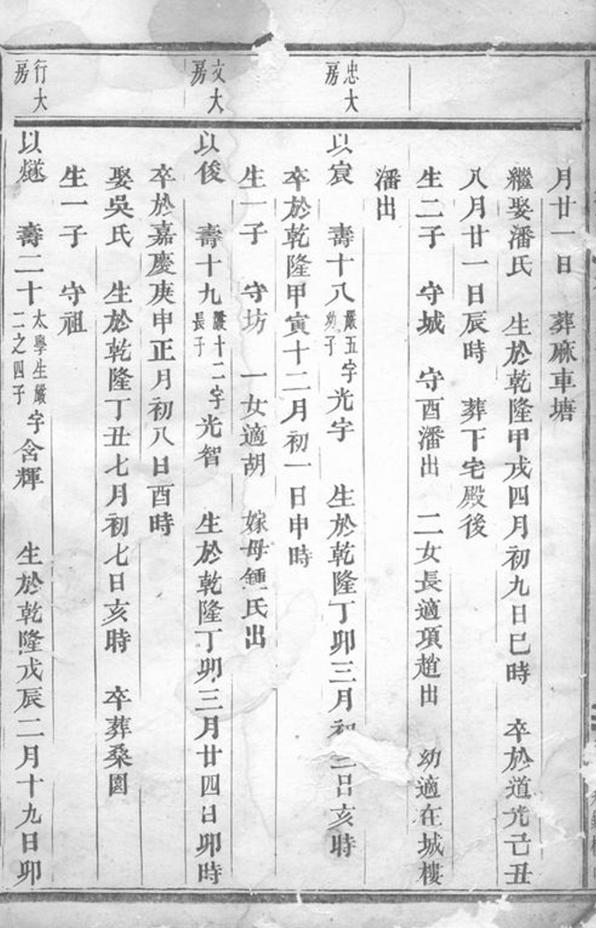 月廿一日　葬麻車塘
繼娶潘氏　生於乾隆甲戌四月初九日巳時　卒於道光己丑
八月廿一日辰時　葬下宅殿後
生二子　守城　守酉潘出　二女長適項趙出　幼適在城樓
潘出
忠大房
以宸　壽十八嚴五幼子字光宇　生於乾隆丁卯三月初二日亥時
卒於乾隆甲寅十二月初一日申時
生一子　守坊　一女適胡　嫁母鍾氏出
文大房
以俊　壽十九嚴十二長子字光智　生於乾隆丁卯三月廿四日卯時
卒於嘉慶庚申正月初八日酉時
娶吳氏　生於乾隆丁丑七月初七日亥時　卒葬桑園
生一子　守祖
行大房
以燧　壽二十太學生嚴二之四子字含輝　生於乾隆戊辰二月十九日卯